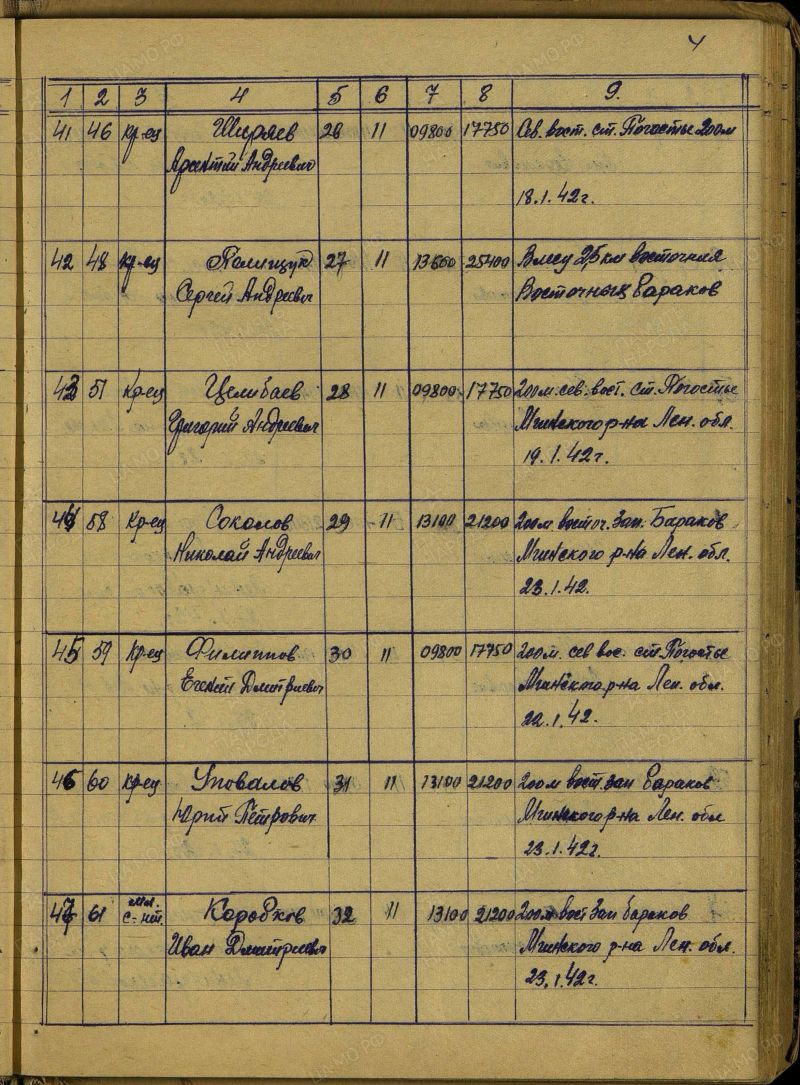 4
1 2 3 4 5 6 7 8 9.
41 46 кр-ец Ширяев 26 11 09800 17750 Сев. вост. ст. Погостье 200м
Андреевич
18.1.42г.
42 48 кр-ец Полищук 27 11 13600 25400 В лесу 2,5 км восточнея
Сергей Андреевич Восточных бараков
43 51 Кр-ец Целибаев 28 11 09800 17750 200м. сев. вост. ст. Погостье
Григорий Андреевич Мгинского р-на Лен. обл.
19.1.42г.
44 58 Кр-ец Соколов 29 11 13100 21200 200м восточ. Зап. Бараков
Николай Андреевич Мгинского р-на Лен. обл.
23.1.42.
45 59 Кр-ец Филиппов 30 11 09800 17750 200м. сев вос. ст. Погостье
Евгений Дмитриевич Мгинского р-на Лен. обл.
22.1.42.
46 60 Кр-ец Уповалов 31 11 13100 21200 200м вост. зап бараков
Юрий Петрович Мгинского р-на Лен. обл
23.1.42г.
47 61 мл. с-нт. Коробков 32 11 13100 21200 200м вост Зап бараков
Иван Дмитриевич Мгинского р-на Лен. обл.
23.1.42г.